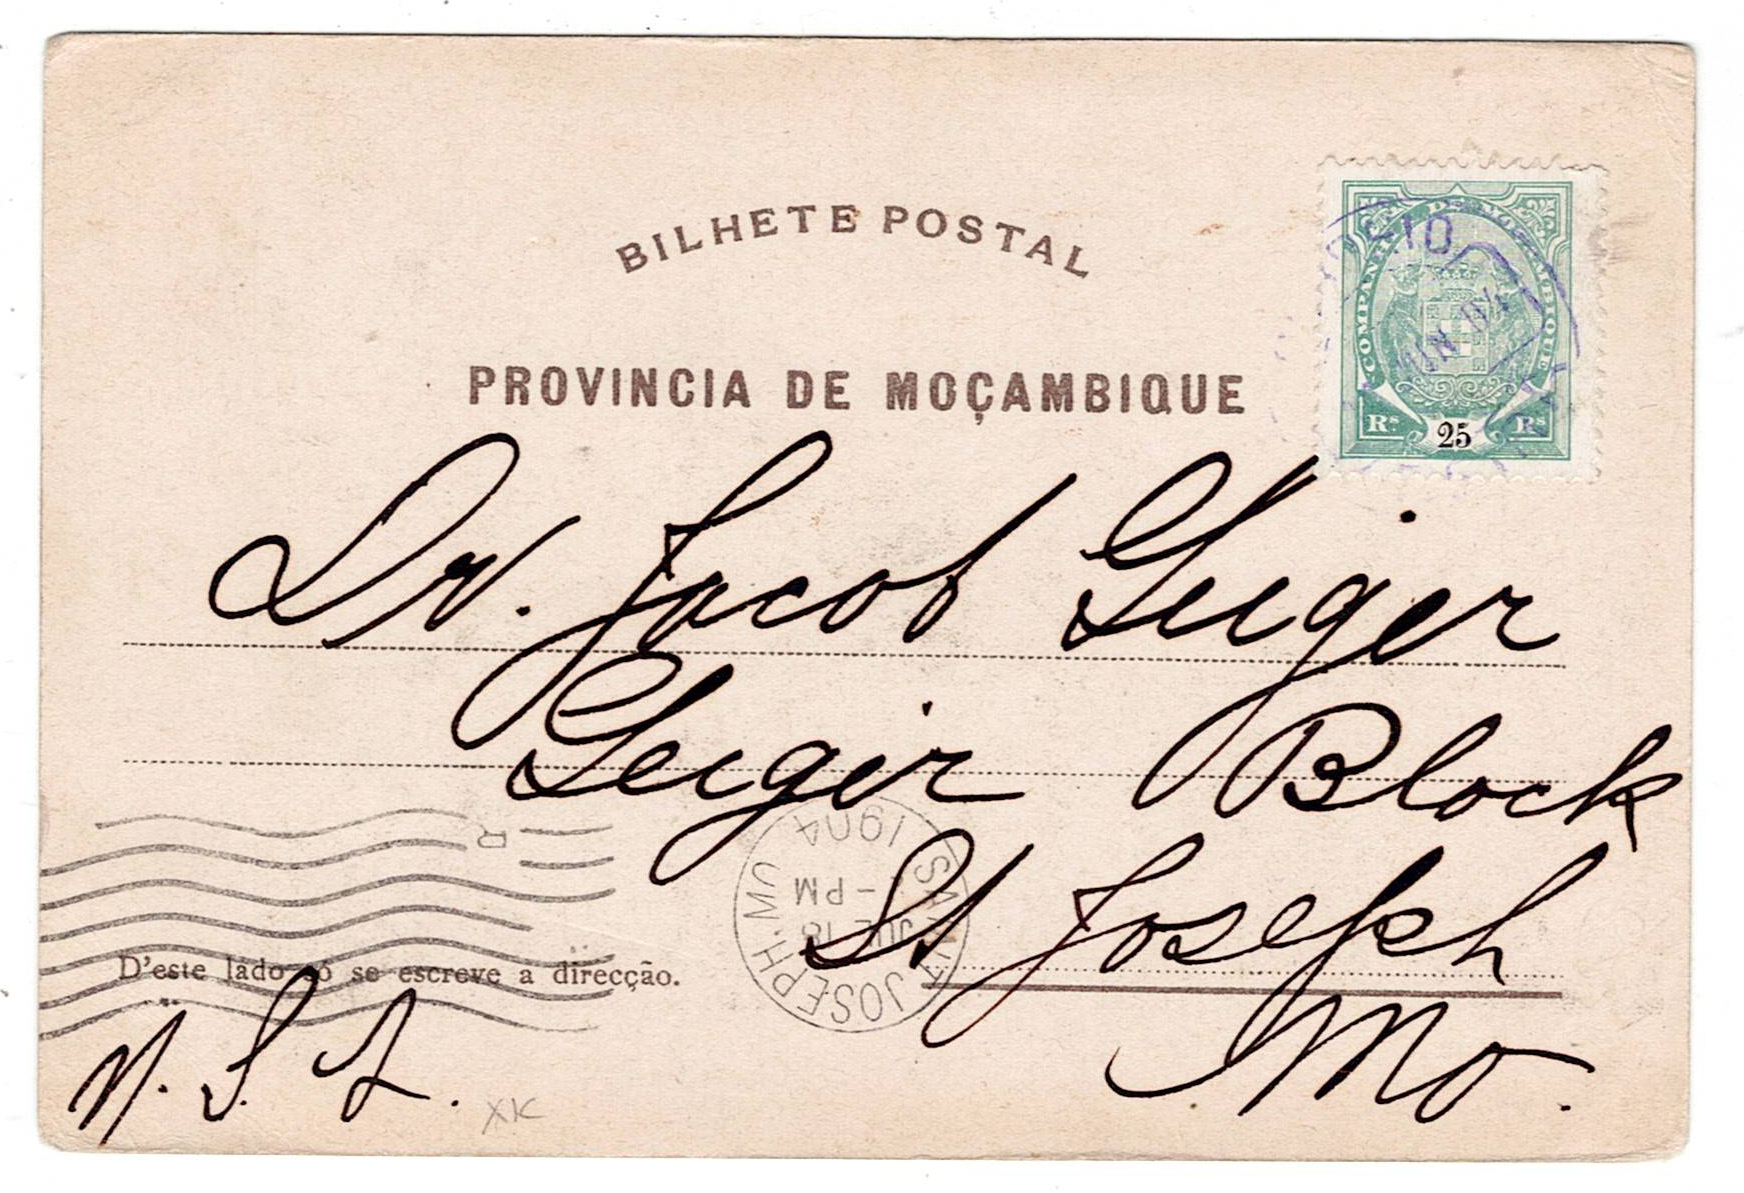 BILHETE POSTAL
PROVINCIA DE MOÇAMBIQUE
COMPANHIA DE MOÇAMBIQUE
Rs 25 Rs
Dr. Jacob Geiger
Geiger Block
St Joseph
Mo.
D'este lado só se escreve a direcção.
JOSEPH. MO
JUL 18
-PM
1904
R
XK